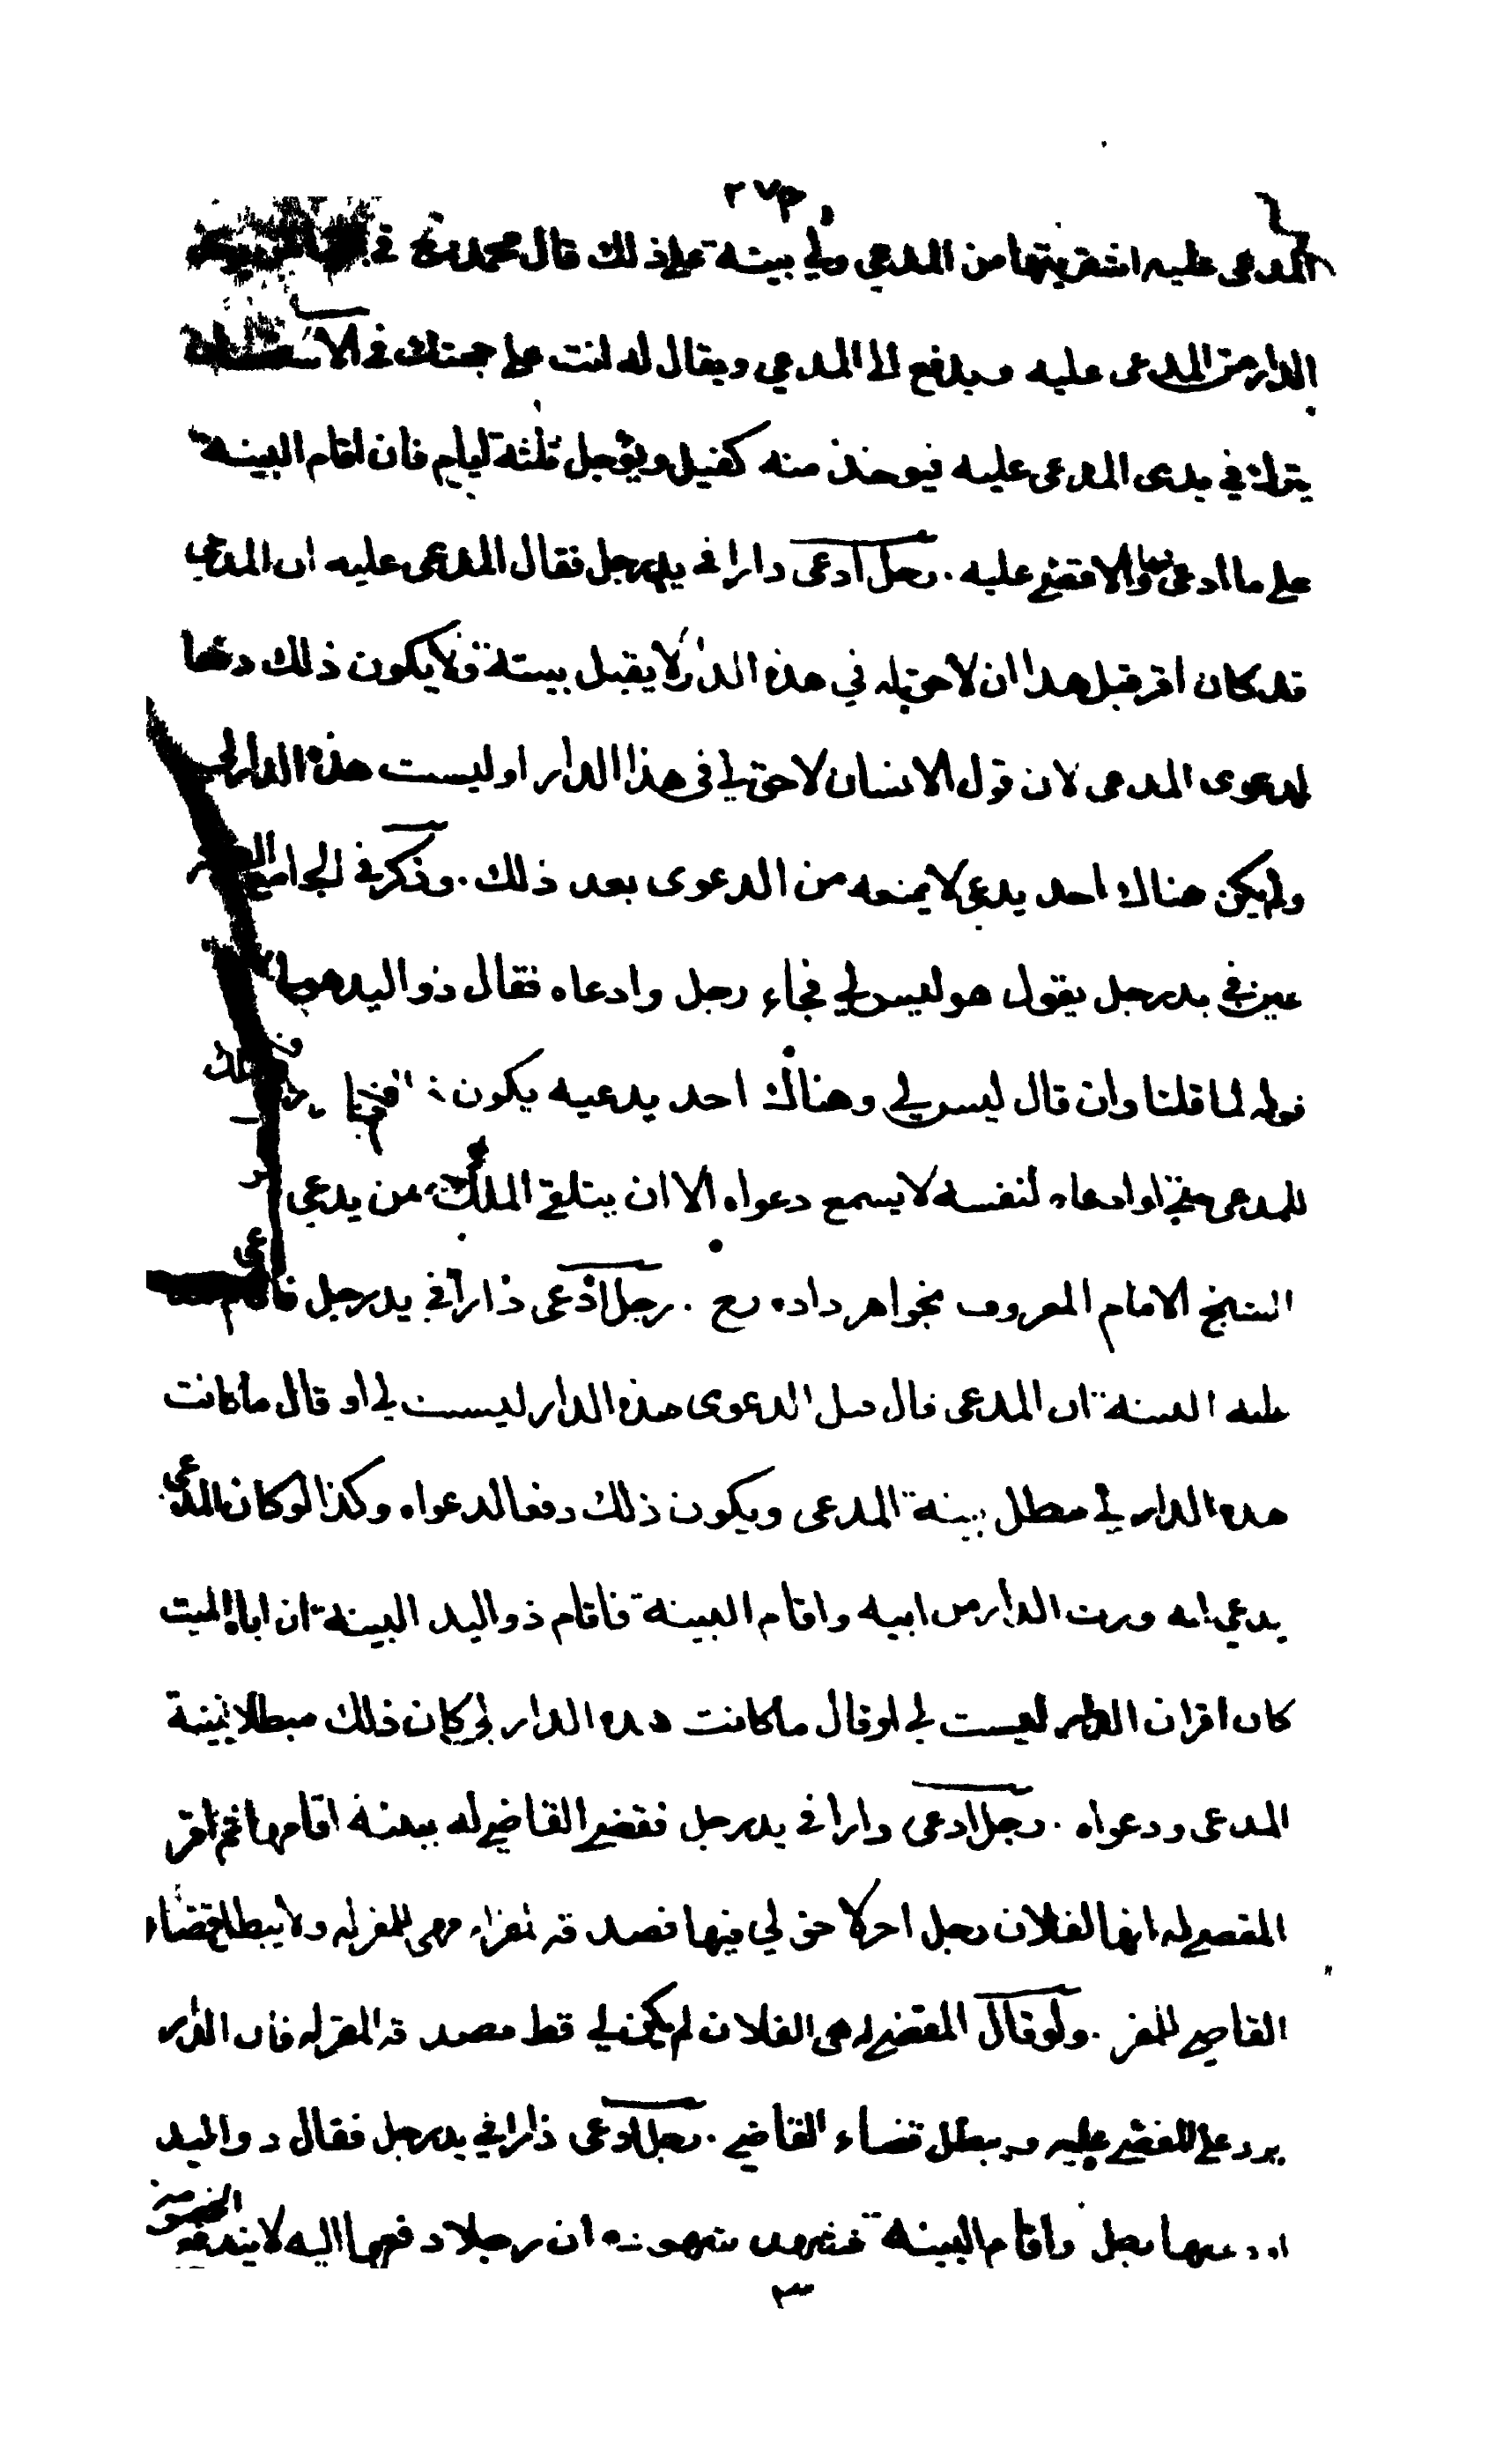 ٢٧٣
المدعى عليه اشتريتها من المدعي ولي بينة على ذلك قال محمد رح في
الدار من المدعى عليه ويدفع الى المدعي ويقال له انت على حجتك في الاستحسان
يترك في يدى المدعى عليه فيوخذ منه كفيل ويؤجل ثلثة ايام فان اقام البينة
على ما ادعى والا قضى عليه . رجل ادعى دارا في يد رجل فقال المدعى عليه ان المدعي
قد كان اقر قبل هذا ان لا حق له في هذه الدار لا يقبل بينته ولا يكون ذلك دفعا
لدعوى المدعى لان قول الانسان لا حق لي في هذا الدار او ليست هذه الدار لي
ولم يكن هناك احد يدعى لا يمنعه من الدعوى بعد ذلك . وذكر في الجامع
عين في يد رجل يقول هو ليس لي فجاء رجل وادعاه فقال ذو اليد هو لي
قوله لما قلنا وان قال ليس لي وهناك احد يدعيه يكون
للمدعى حتى لو ادعاه لنفسه لا يسمع دعواه الا ان يتلقى الملك من يدعي
الشيخ الامام المعروف بخواهر داده رح . رجل ادعى دارا في يد رجل
عليه البينة ان المدعى قال قبل الدعوى هذه الدار ليست لي او قال ما كانت
هذه الدار لي يبطل بينة المدعى ويكون ذلك دفعا لدعواه وكذا لو كان المدعى
يدعي انه ورث الدار من ابيه واقام البينة فاقام ذو اليد البينة ان اباه الميت
كان اقر ان الدار ليست لي او قال ما كانت هذه الدار لي كان ذلك مبطلا بينة
المدعى ودعواه . رجل ادعى دارا في يد رجل فقضى القاضي له ببينة اقامها ثم اقر
المقضي له انها لفلان رجل اخر لا حق لي فيها فصدقه المقر له فهى للمقر له ولا يبطل قضاء
القاضي للمقر . ولو قال المقضي له هى لفلان لم يكن لي قط فصدقه المقر له فان الدار
يرد على المقضي عليه ويبطل قضاء القاضي . رجل ادعى دارا في يد رجل فقال ذو اليد
اودعنيها رجل واقام البينة فشهد شهوده ان رجلا دفعها اليه لا يندفع الخصومة